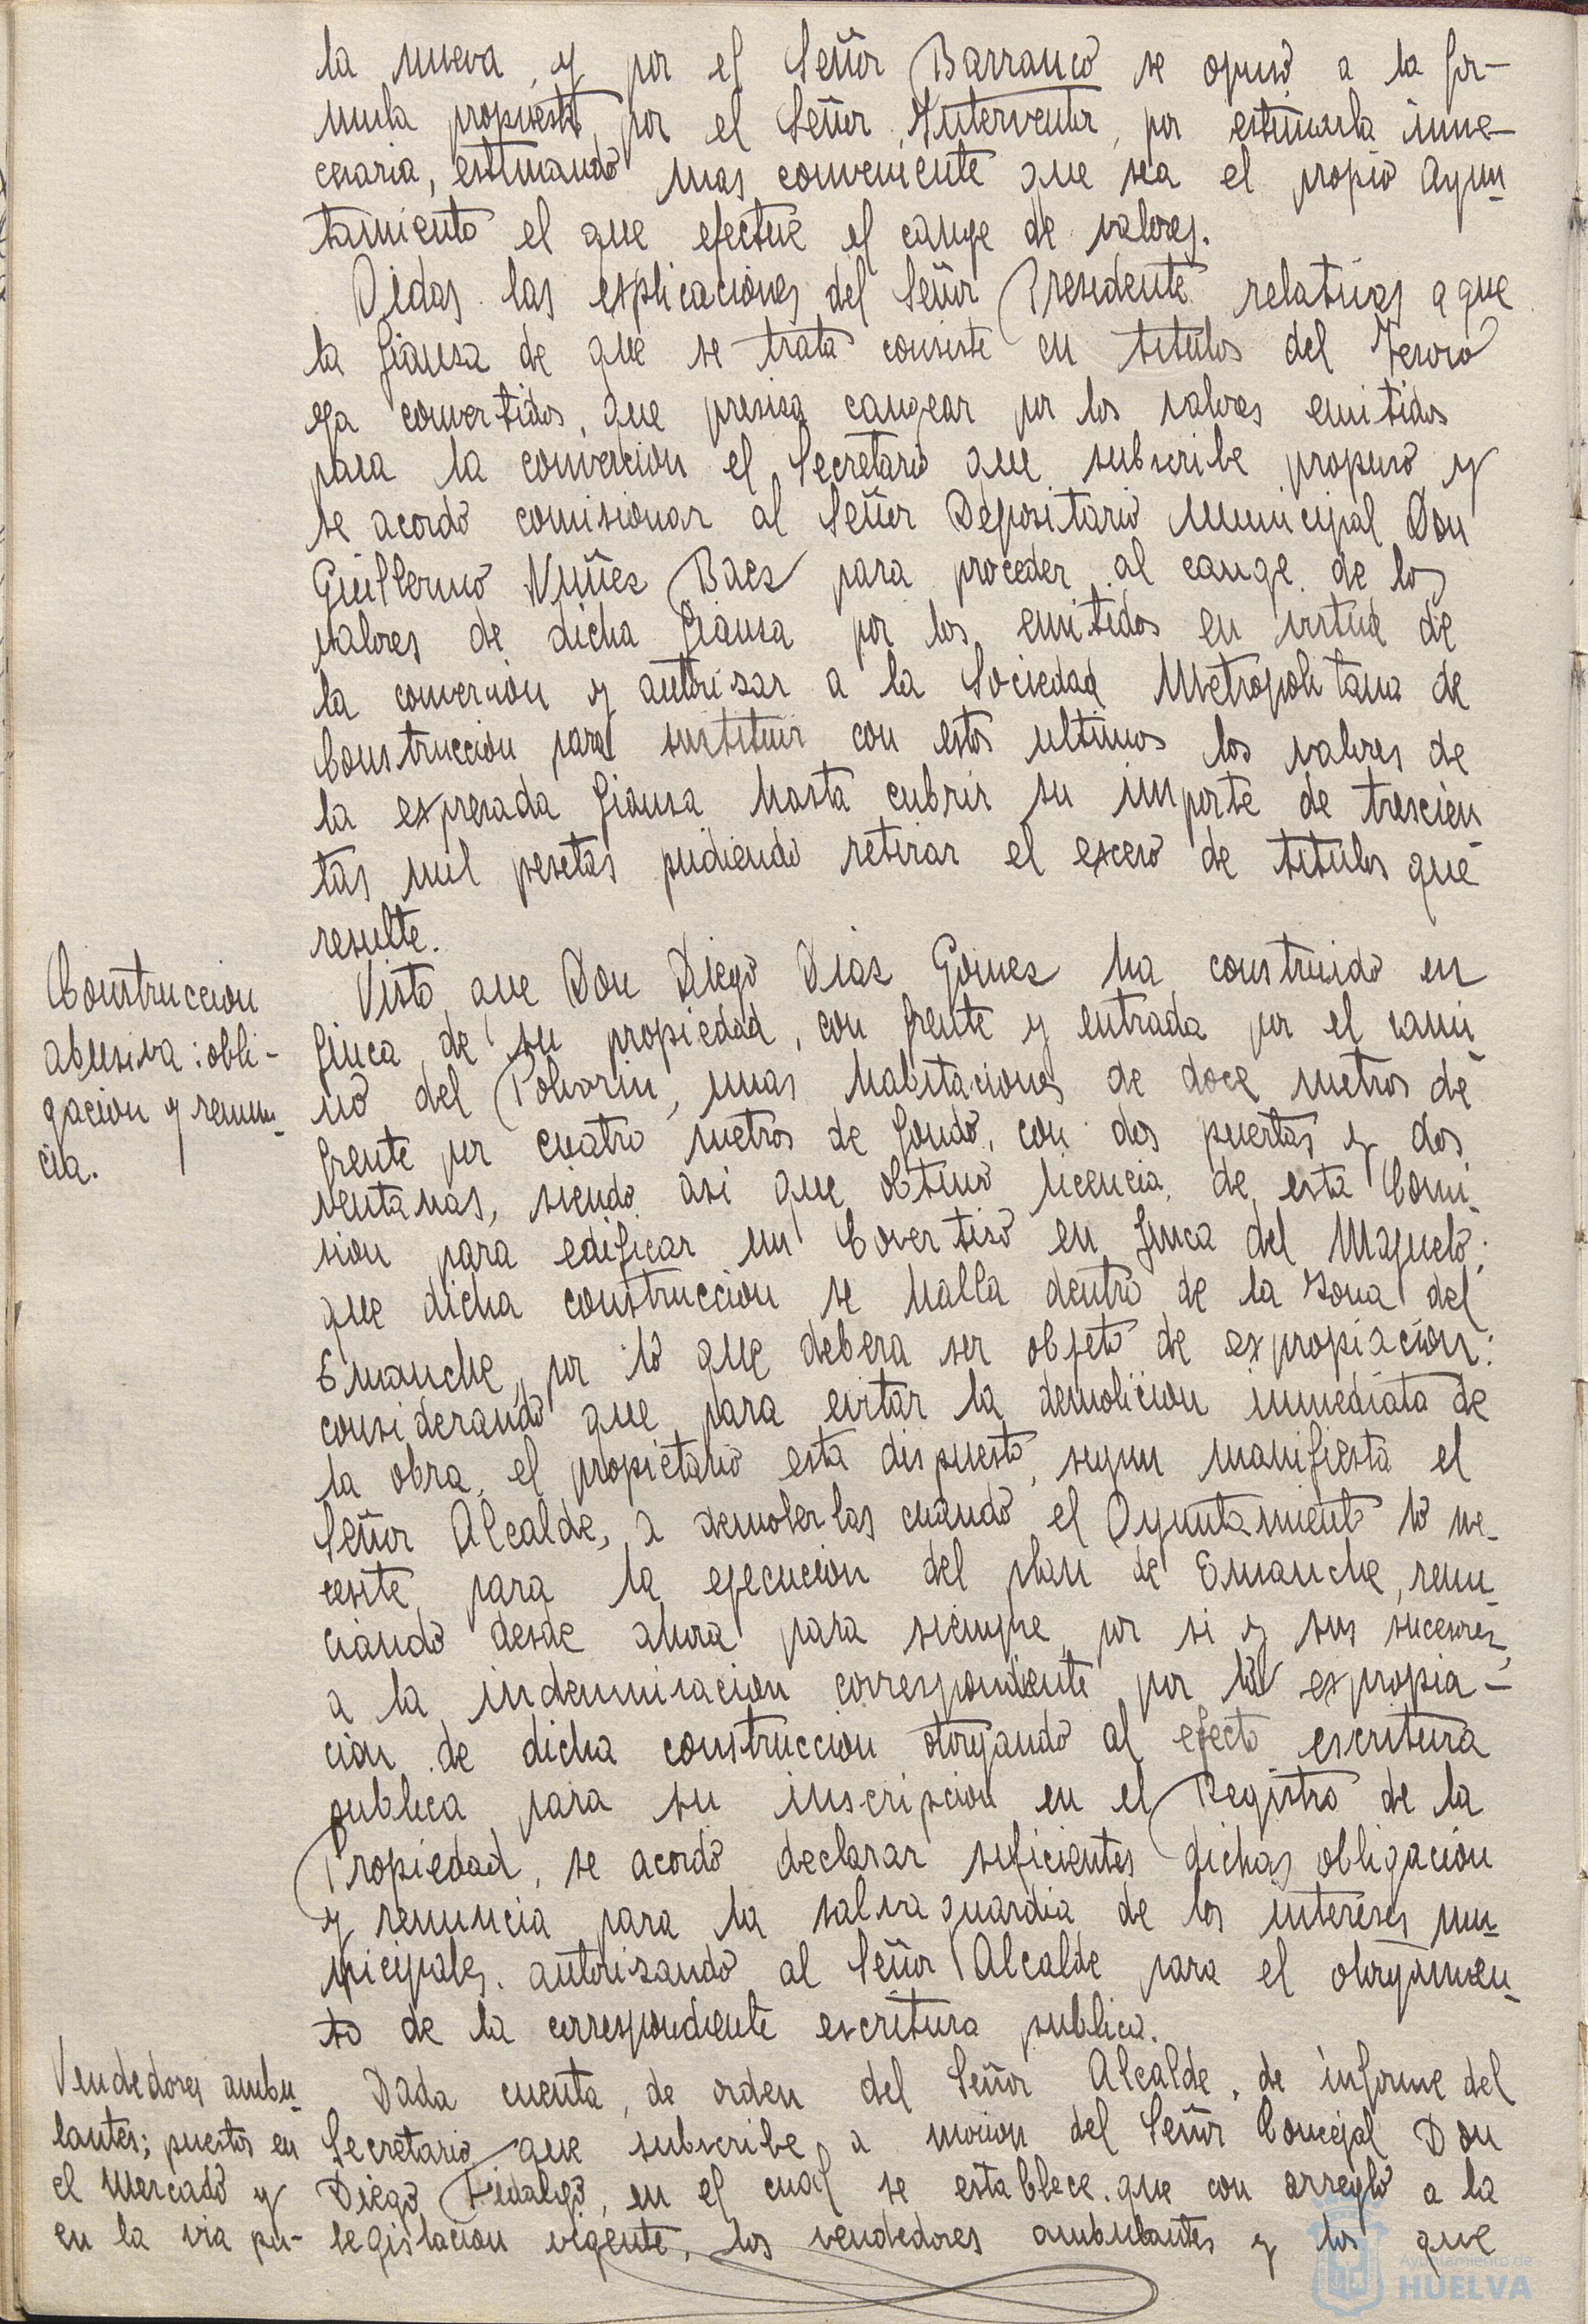 la nueva, y por el Señor Barranco se opuso a la for-
mula propuesta, por el Señor Interventor, por estimarla inne-
cesaria, estimando mas conveniente que sea el propio Ayun-
tamiento el que efectue el cange de valores.
Oidas las explicaciones del Señor Presidente relativas a que
la fianza de que se trata consiste en titulos del Tesoro
ya convertidos, que presisa cangear por los valores emitidos
para la convercion el Secretario que subscribe propuso y
se acordó comisionar al Señor Depositario Municipal Don
Guillermo Nuñez Baez para proceder al cange de los
valores de dicha fianza por los emitidos en virtud de
la convercion y autorisar a la Sociedad Metropolitana de
Construccion para sustituir con estos ultimos los valores de
la expresada fianza hasta cubrir su importe de trescien-
tas mil pesetas pudiendo retirar el exceso de titulos que
resulte.
Construccion
abusiva: obli-
gacion y renun-
cia.
Visto que Don Diego Dias Gomez ha construido en
finca de su propiedad, con frente y entrada por el cami-
no del Polvorin, unas habitaciones de doce metros de
frente por cuatro metros de fondo, con dos puertas y dos
ventanas, siendo asi que obtuvo licencia de esta Comi-
sion para edificar un Covertiso en finca del Majuelo;
que dicha construccion se halla dentro de la zona del
Ensanche por lo que debera ser objeto de expropiacion:
considerando que para evitar la demolicion inmediata de
la obra, el propietario esta dispuesto, segun manifiesta el
Señor Alcalde, a demolerlas cuando el Ayuntamiento lo ne-
cesite para la ejecucion del plan de Ensanche, renun-
ciando desde ahora para siempre por si y sus sucesores,
a la indemnisacion correspondiente por la expropia-
cion de dicha construccion otorgando al efecto escritura
publica para su inscripcion en el Registro de la
Propiedad, se acordó declarar suficientes dichas obligacion
y renuncia para la salvaguardia de los intereses mu-
nicipales. autorisando al Señor Alcalde para el otorgamien-
to de la correspondiente escritura publica.
Vendedores ambu-
lantes; puestos en
el Mercado y
en la via pu-
Dada cuenta, de orden del Señor Alcalde, de informe del
Secretario que subscribe a mocion del Señor Concejal Don
Diego Fidalgo, en el cual se establece que con arreglo a la
legislacion vigente, los vendedores ambulantes y los que
Ayuntamiento de
HUELVA